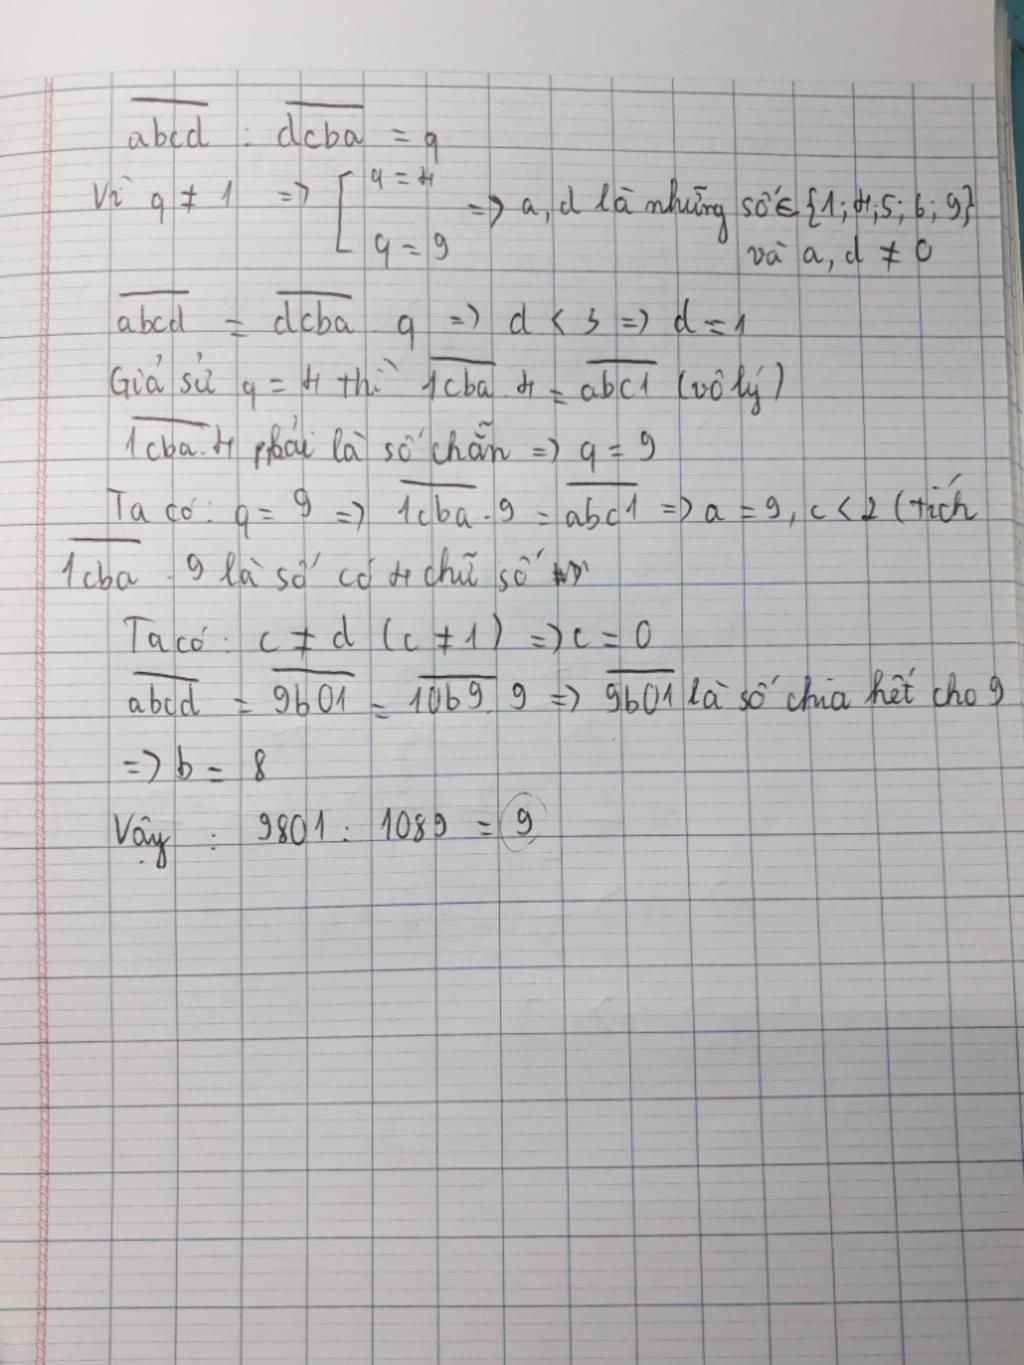 abcd : dcba = q
Vì q ≠ 1 => [ q = 4 q = 9 => a, d là những số ∈ {1; 4; 5; 6; 9}
và a, d ≠ 0
abcd = dcba . q => d < 3 => d = 1
Giả sử q = 4 thì 1cba . 4 = abc1 (vô lý)
1cba . 4 phải là số chẵn => q = 9
Ta có : q = 9 => 1cba . 9 = abc1 => a = 9, c < 2 (tích
1cba . 9 là số có 4 chữ số
Ta có : c ≠ d (c ≠ 1) => c = 0
abcd = 9b01 = 10b9 . 9 => 9b01 là số chia hết cho 9
=> b = 8
Vậy : 9801 : 1089 = 9